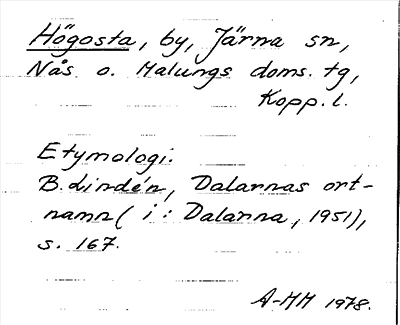 Högosta, by, Järna sn,
Nås o. Malungs doms. tg,
Kopp. l.
Etymologi.
B. Lindén, Dalarnas ort-
namn ( i : Dalarna, 1951),
s. 167.
A-HH 1978.